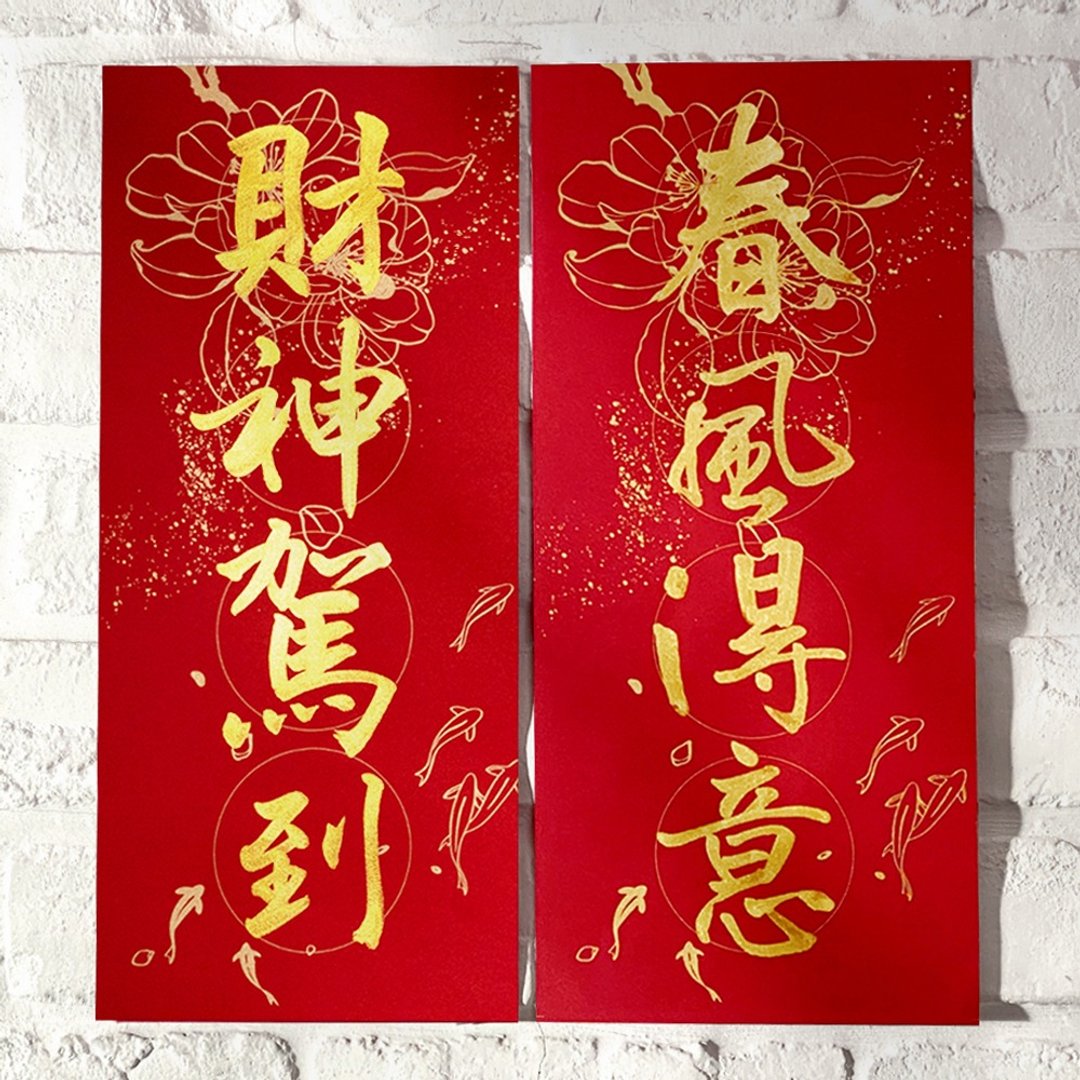 春風得意
財神駕到